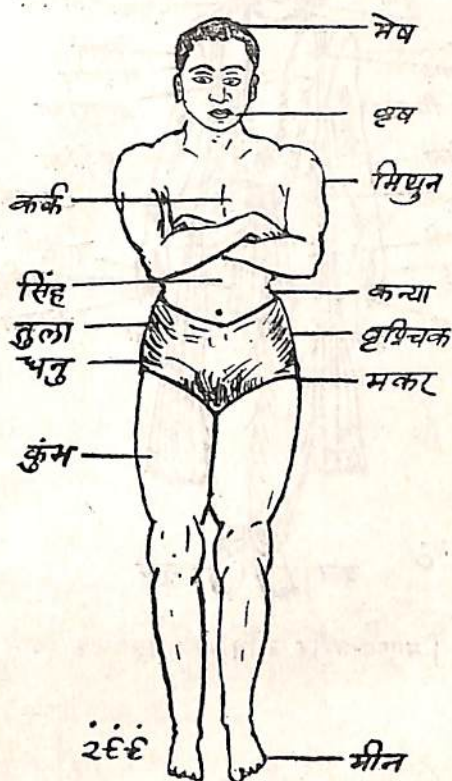 मेष
वृष
मिथुन
कर्क
सिंह
कन्या
तुला
वृश्चिक
धनु
मकर
कुंभ
मीन